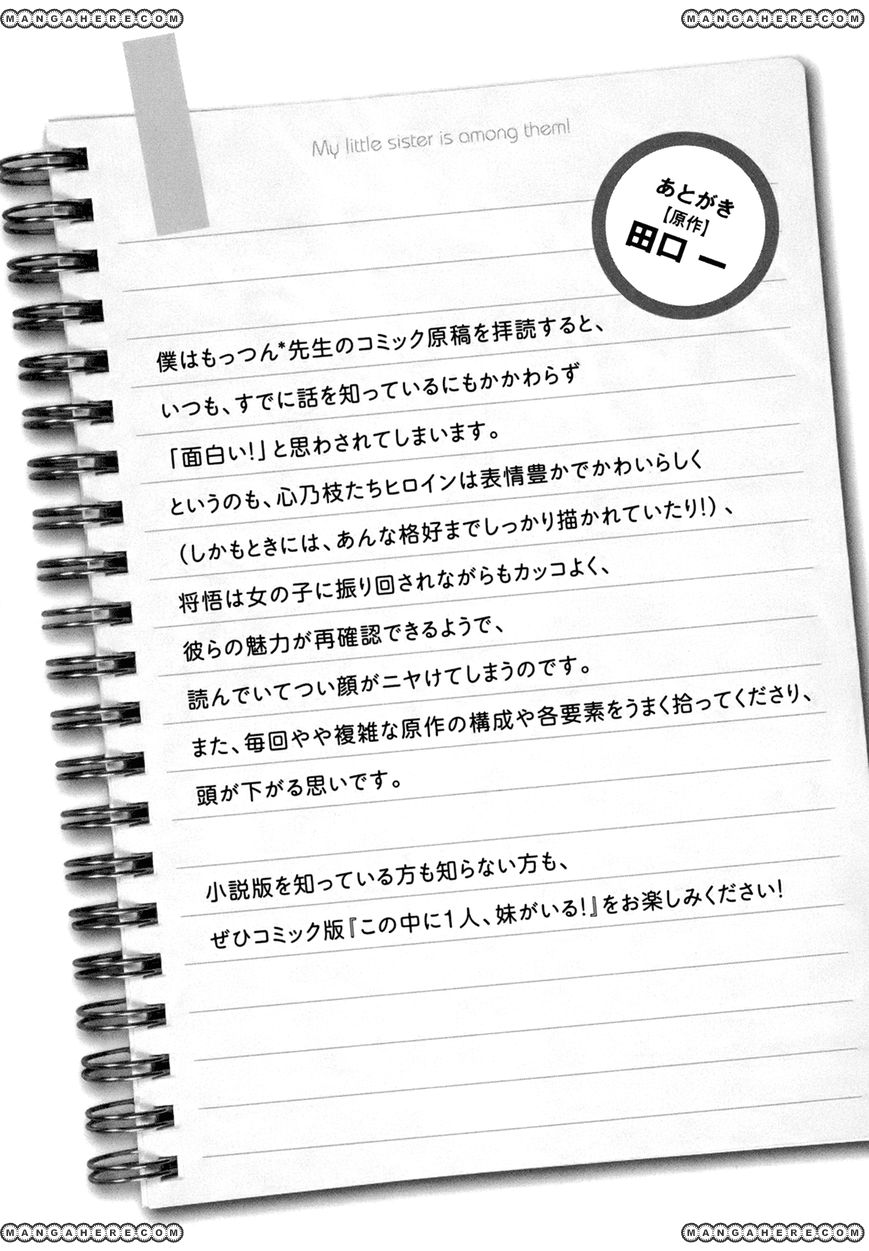 MANGAHERE.COM
MANGAHERE.COM
My little sister is among them!
あとがき
【原作】
田口 一
僕はもっつん*先生のコミック原稿を拝読すると、
いつも、すでに話を知っているにもかかわらず
「面白い!」と思わされてしまいます。
というのも、心乃枝たちヒロインは表情豊かでかわいらしく
(しかもときには、あんな格好までしっかり描かれていたり!)、
将悟は女の子に振り回されながらもカッコよく、
彼らの魅力が再確認できるようで、
読んでいてつい顔がニヤけてしまうのです。
また、毎回やや複雑な原作の構成や各要素をうまく拾ってくださり、
頭が下がる思いです。
小説版を知っている方も知らない方も、
ぜひコミック版『この中に1人、妹がいる!』をお楽しみください!
MANGAHERE.COM
MANGAHERE.COM